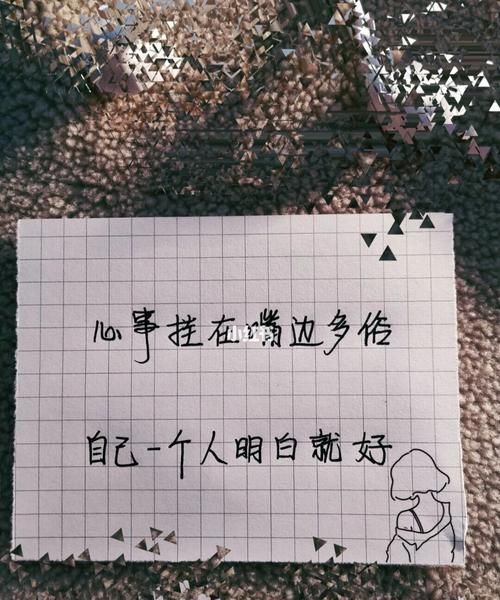 心事挂在嘴边多俗
自己一个人明白就好
小红书